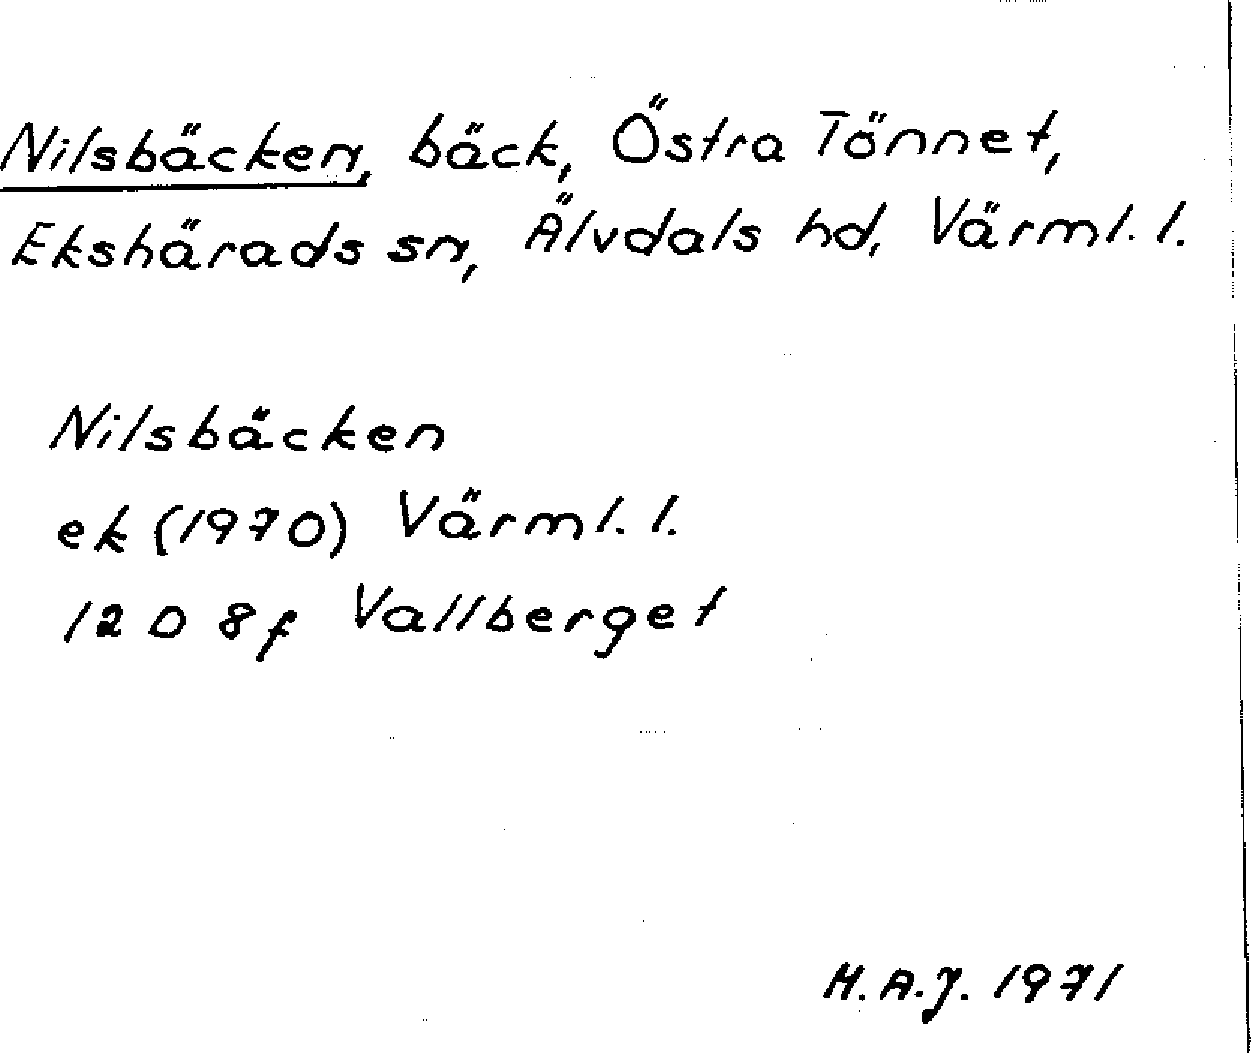 Nilsbäcken, bäck, Östra Tönnet,
Ekshärads sn, Älvdals hd, Värml. l.
Nilsbäcken
ek (1970) Värml. l.
12 D 8f Vallberget
H.A.J. 1971